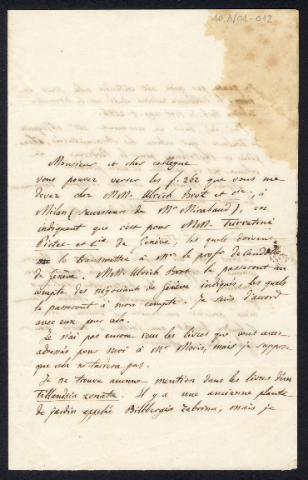 Monsieur et cher collègue
vous pouvez verser les f. 262 que vous me
devez chez MM. Ulrich Brot et Cie, à
Milan (successeurs de Mr Mirabaud), en
indiquant que c'est pour MM. Turrettini
Pictet et Cie de Genève, les quels doivent
le transmettre à Mr le profr de Candolle
de Genève. MM. Ulrich Brot le passeront au
compte des négociants de Genève indiqués, les quels
le passeront à mon compte. Je suis d'accord
avec eux pour cela.
Je n'ai pas encore reçu les livres que vous avez
adressés pour moi à Mr Moris, mais je suppose
que cela ne tardera pas.
Je ne trouve aucune mention dans les livres d'un
Tillandsia zonata. Il y a une ancienne plante
de jardin appelée Billbergia zebrina, mais je